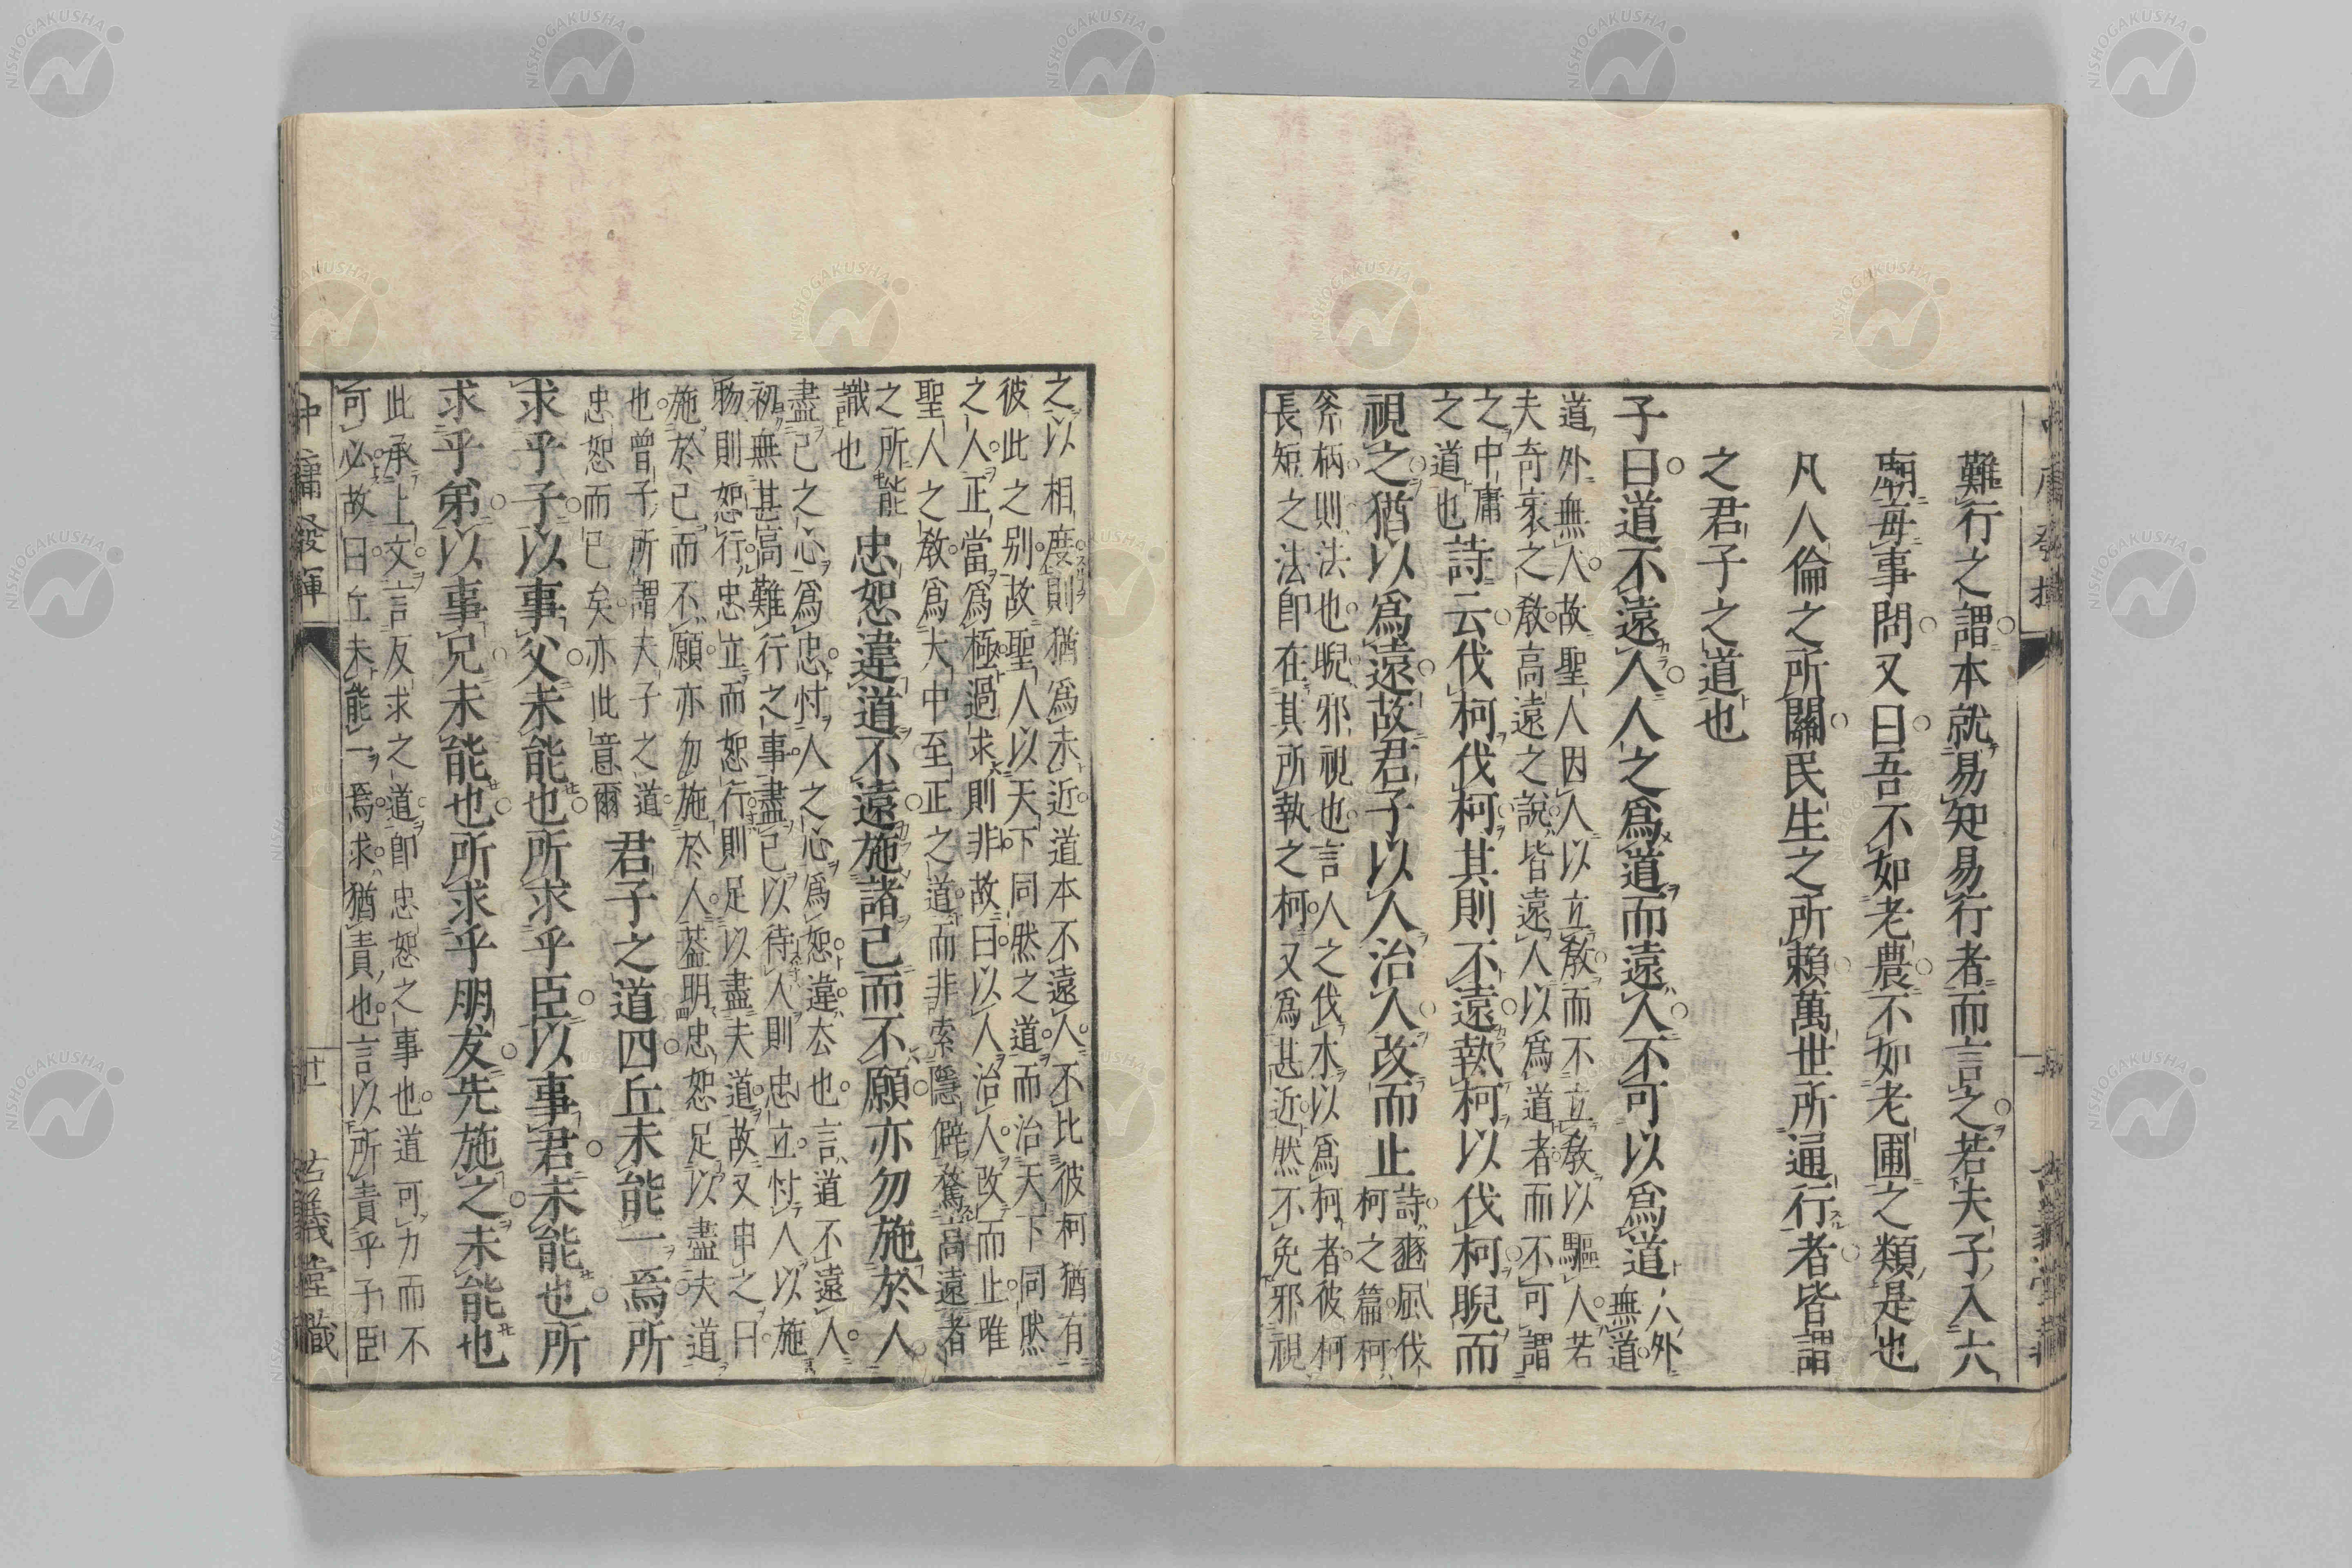 中庸發揮
古義堂藏
難行之謂本就易知易行者而言之若夫子入大
廟每事問又曰吾不如老農不如老圃之類是也
凡人倫之所關民生之所賴萬世所通行者皆謂
之君子之道也
子曰道不遠人人之爲道而遠人不可以爲道人外
無道
道外無人故聖人因人以立教而不立教以驅人若
夫奇衺之教高遠之說皆遠人以爲道者而不可謂
之中庸
之道也
詩云伐柯伐柯其則不遠執柯以伐柯睨而
視之猶以爲遠故君子以人治人改而止
詩豳風伐
柯之篇柯
斧柄則法也睨邪視也言人之伐木以爲柯者彼柯
長短之法卽在其所執之柯又爲甚近然不免邪視
之以相度則猶爲未近道本不遠人不比彼柯猶有
彼此之別故聖人以天下同然之道而治天下同然
之人正當爲極過求則非故曰以人治人改而止唯
聖人之教爲大中至正之道而非索隱僻騖高遠者
之所能
識也
忠恕違道不遠施諸己而不願亦勿施於人
盡己之心爲忠忖人之心爲恕違去也言道不遠人
初無甚高難行之事盡己以待人則忠立忖人以施
物則恕行忠立而恕行則足以盡夫道故又申之曰
施於己而不願亦勿施於人蓋明忠恕足以盡夫道
也曾子所謂夫子之道
忠恕而已矣亦此意爾
君子之道四丘未能一焉所
求乎子以事父未能也所求乎臣以事君未能也所
求乎弟以事兄未能也所求乎朋友先施之未能也
此承上文言反求之道卽忠恕之事也道可力而不
可必故曰丘未能一焉求猶責也言以所責乎子臣
中庸發揮
古義堂藏